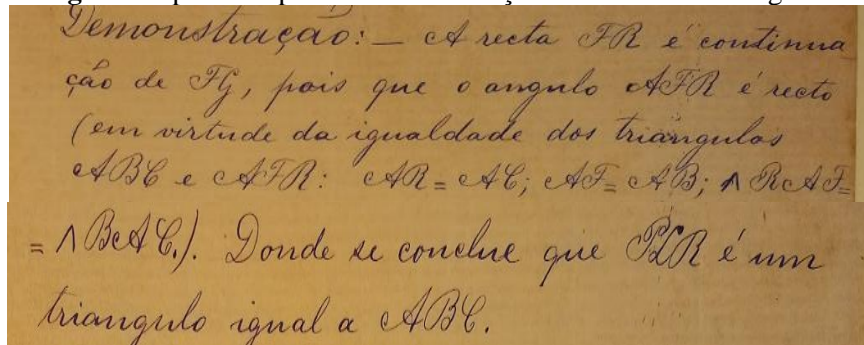 Demonstração: — A recta FR é continua
ção de FG, pois que o angulo AFR é recto
(em virtude da igualdade dos triangulos
ABC e AFR: AR = AC; AF = AB; ∧ RAF =
= ∧ BAC.). Donde se conclue que R é um
triangulo igual a ABC.